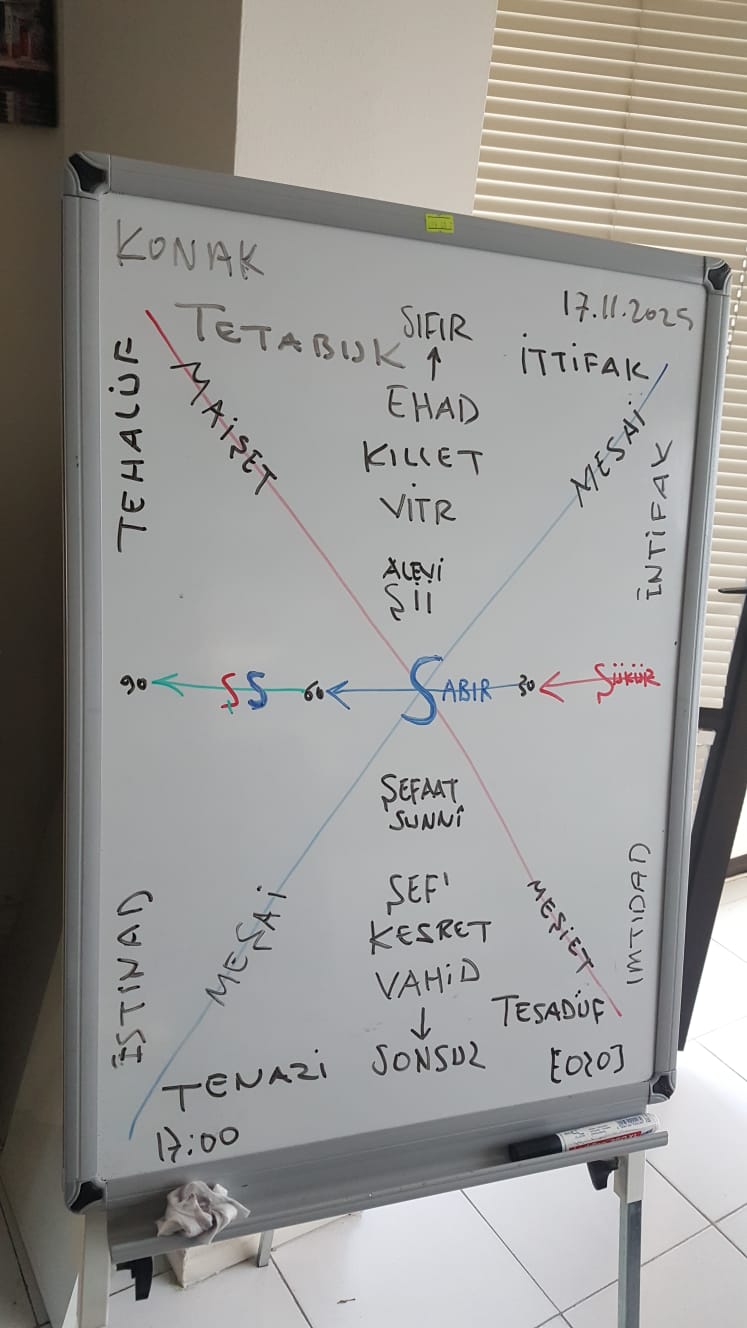 KONAK
17.11.2025
TETABUK
SIFIR
İTTİFAK
TEHALÜF
MAİŞET
EHAD
MESAİ
KILLET
İNTİFAK
VİTR
ALEVİ
Şİİ
90
ŞS
60
SABIR
30
ŞÜKÜR
ŞEFAAT
SUNNÎ
ŞEF'
KESRET
VAHİD
MEŞİET
IMTIDAD
MEŞAİ
İSTİNAD
TESADÜF
TENAZİ
SONSUZ
[020]
17:00